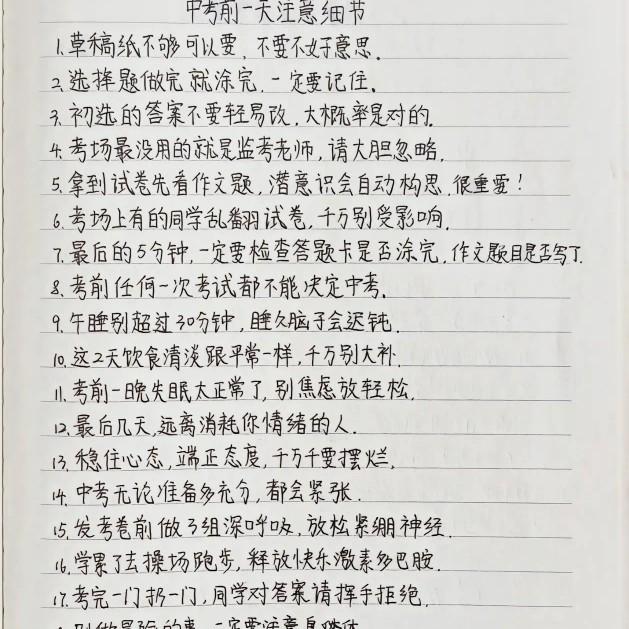 中考前一天注意细节
1.草稿纸不够可以要,不要不好意思.
2.选择题做完就涂完,一定要记住.
3.初选的答案不要轻易改,大概率是对的.
4.考场最没用的就是监考老师,请大胆忽略.
5.拿到试卷先看作文题,潜意识会自动构思,很重要!
6.考场上有的同学乱翻试卷,千万别受影响.
7.最后的5分钟,一定要检查答题卡是否涂完,作文题目是否写了.
8.考前任何一次考试都不能决定中考.
9.午睡别超过30分钟,睡久脑子会迟钝.
10.这2天饮食清淡跟平常一样,千万别大补.
11.考前一晚失眠太正常了,别焦虑放轻松.
12.最后几天,远离消耗你情绪的人.
13.稳住心态,端正态度,千万千要摆烂.
14.中考无论准备多充分,都会紧张.
15.发考卷前做3组深呼吸,放松紧绷神经.
16.学累了去操场跑步,释放快乐激素多巴胺.
17.考完一门扔一门,同学对答案请挥手拒绝.
别做冒险的事,一定要注意身体